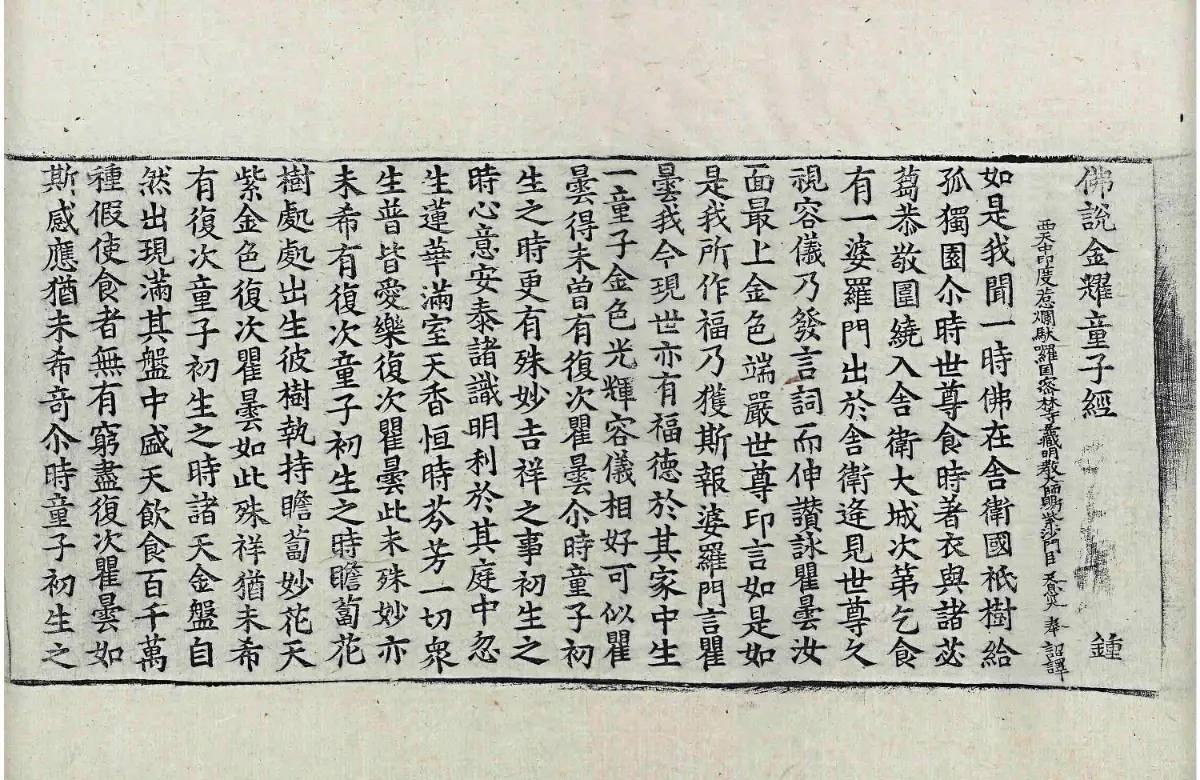 佛說金耀童子經 鍾
西天中印度惹爛馱囉國密林寺三藏明教大師賜紫沙門臣天息災奉 詔譯
如是我聞一時佛在舍衛國祇樹給
孤獨園尒時世尊食時著衣與諸苾
蒭恭敬圍繞入舍衛大城次第乞食
有一婆羅門出於舍衛逄見世尊久
視容儀乃發言詞而伸讚詠瞿曇汝
面最上金色端嚴世尊印言如是如
是我所作福乃獲斯報婆羅門言瞿
曇我今現世亦有福德於其家中生
一童子金色光輝容儀相好可似瞿
曇得未曾有復次瞿曇尒時童子初
生之時更有殊妙吉祥之事初生之
時心意安泰諸識明利於其庭中忽
生蓮華滿室天香恒時芬芳一切衆
生普皆愛樂復次瞿曇此未殊妙亦
未希有復次童子初生之時瞻蔔花
樹處處出生彼樹執持瞻蔔妙花天
紫金色復次瞿曇如此殊祥猶未希
有復次童子初生之時諸天金盤自
然出現滿其盤中盛天飲食百千萬
種假使食者無有窮盡復次瞿曇如
斯感應猶未希奇尒時童子初生之